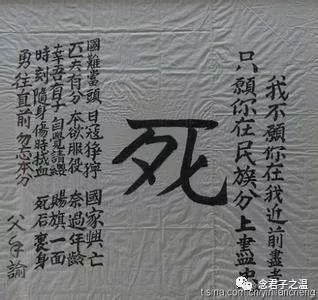 我不願你在我近前盡孝
只願你在民族分上盡忠
死
國難當頭 日寇猙獰 國家興亡
匹夫有分 本欲服役 奈過年齡
幸吾有子 自覺請纓 賜旗一面
時刻隨身 傷時拭血 死后裹身
勇往直前 勿忘本分
父手諭
念君子之温